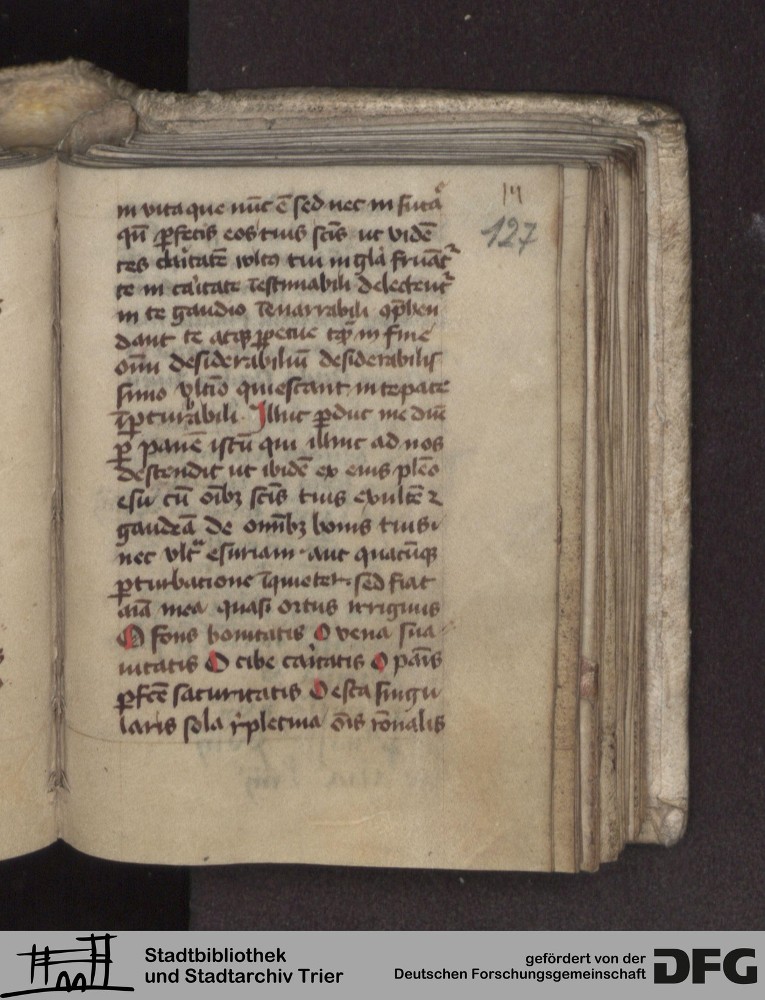 14
127
in vita que nūc ē sed nec in futᵃ
qn̄ ꝑfectis eos tuis sc̄is ut vidē
tes claͥtatē wltꝰ tui in gl̄a fruāt᷑
te in caͥtate īestimabili delectent᷑
in te gaudio īenarrabili 9p̄hen
dant te atqꝫ ꝑpetue tāqͣ in fine
oīm desiderabiliū desiderabilis
simo vltīo quiescant in te pace
īꝑturbabili Illuc ꝑduc me dn̄e
ꝑ panē istū qui illinc ad nos
descendit ut ibidē ex eius pleō
esu cū oībꝫ sc̄is tuis exultē ⁊
gaudeā de om̄ibꝫ bonis tuis
nec vltͣ esuriam aut quacūqꝫ
ꝑturbacione īquieter sed fiat
aīa mea quasi ortus irriguus
O fons bonitatis O vena sua
uitatis O cibe caͥtatis O pāis
ꝑfc̄e saturitatis O esca singu
laris sola r̄pletiua ōis rōnalis
Stadtbibliothek
und Stadtarchiv Trier
gefördert von der
Deutschen Forschungsgemeinschaft
DFG